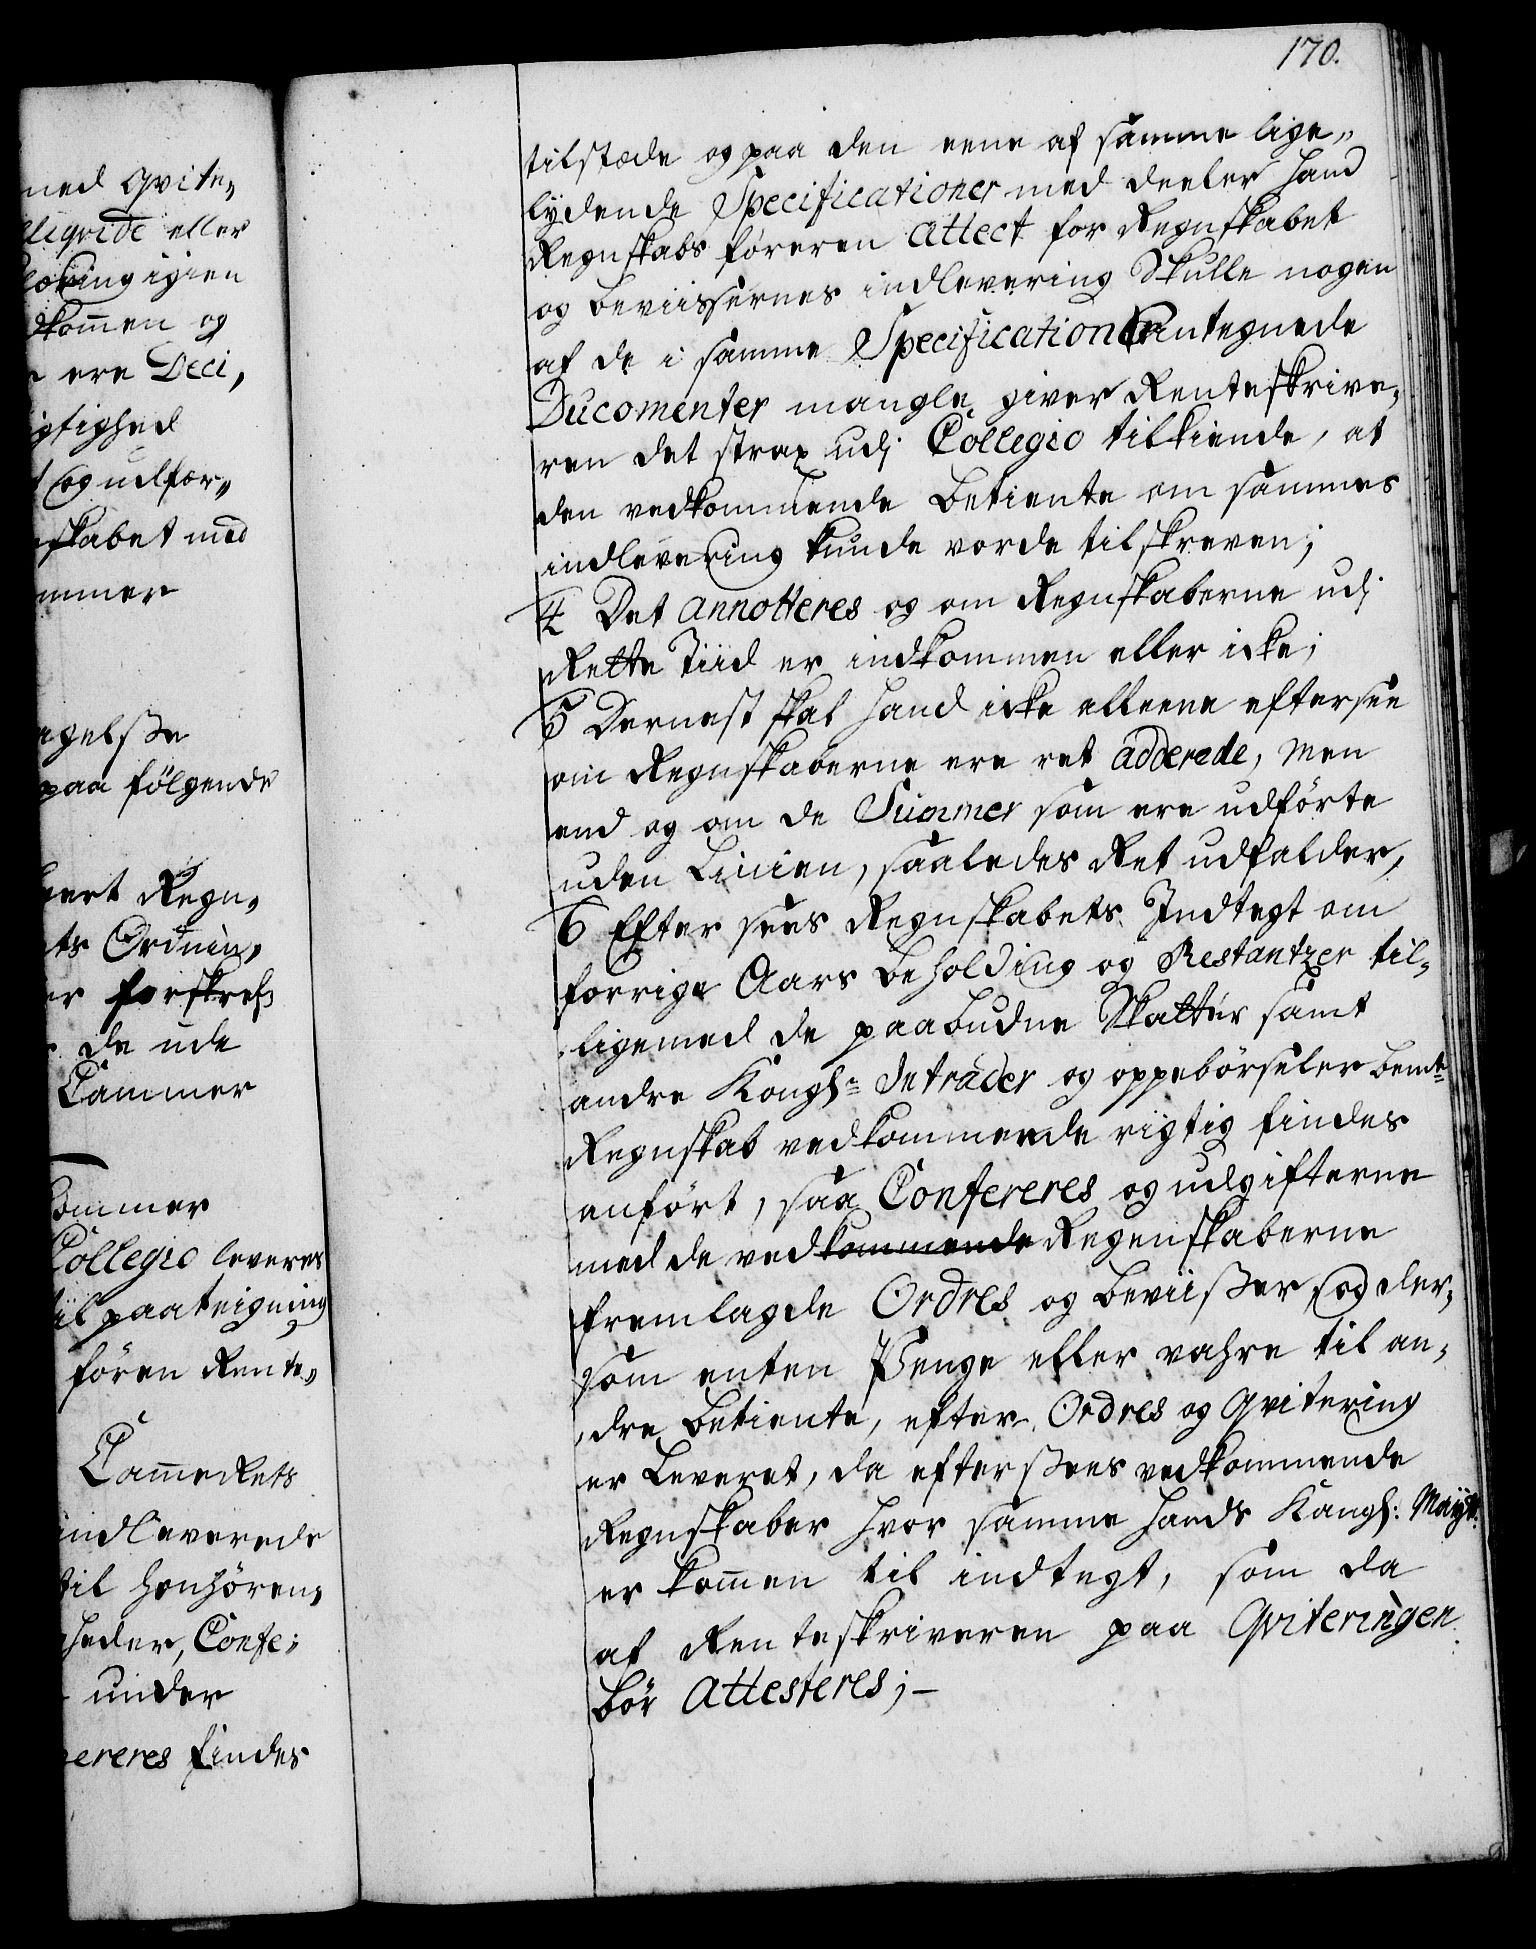 ned qvite„
lleqvide eller
løering igien
dkom̄en og
r ere Deci,
igtighed
t og udfør„
skabet med
mmer
agelsße
paa fölgende
hvert Regn„
ts Ordnin„
er forskref„
r de ude
Cammer
Commer
Collegio leveres
til paateigning
fören Rente„
Cam̄erets
indleverede
til henhören„
heder, Confe„
under
pereres findes
170.
tilstæde og paa den eene af samme lige„
lydende Specificationer med deeler hand
Regnskabs føreren attect for Regnskabet
og beviissernes indlevering Skulle nogen
af de i samme Specificationer antegnede
Ducomenter mangle giver Renteskrive„
ren det strax udj Collegio tilkiende, at
den vedkommende betiente om sammes
indlevering kunde vorde tilskreven;
4 Det annotteres og om Regnskaberne udj
Rette Tiid er indkommen eller icke;
5 Dernest skal hand icke alleene eftersee
om Regnskaberne ere ret adderede, men
end og om de Summer som ere udförte
uden Linien, saaledes Ret udfalder,
6 Efter sees Regnskabets Indtegt om
forrige Aars beholding og Restantzer til„
ligemed de paabudne Skatter samt
andre Kongl: Intrader og oppebörseler bemte
Regnskab vedkommende rigtig findes
anfört, saa Confereres og udgifterne
med de vedkommende Regenskaberne
fremlagde Ordres og beviisßer, og der„
som enten Penge eller vahre til an„
dre betiente, efter Ordres og qvitering
er Leveret, da eftersßees vedkommende
Regnskaber hvor samme hands Kongl: Mayst:
er kom̄en til indtegt, som da
af Renteskriveren paa Qviteringen
bör attesteres;–